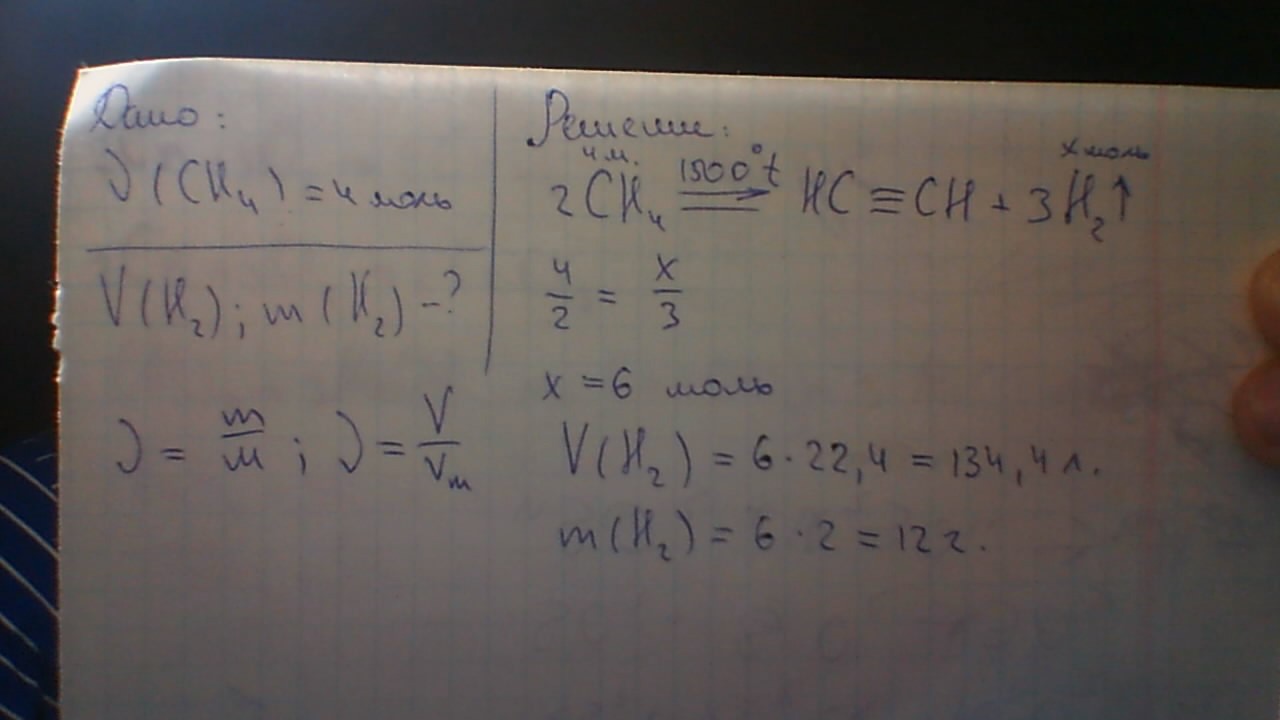 Дано:
ν(CH₄) = 4 моль
V(H₂); m(H₂) -?
ν = m/M; ν = V/Vₘ
Решение:
4 м. x моль
2CH₄ 1500°t ⇒ HC≡CH + 3H₂↑
4/2 = x/3
x = 6 моль
V(H₂) = 6·22,4 = 134,4 л.
m(H₂) = 6·2 = 12 г.